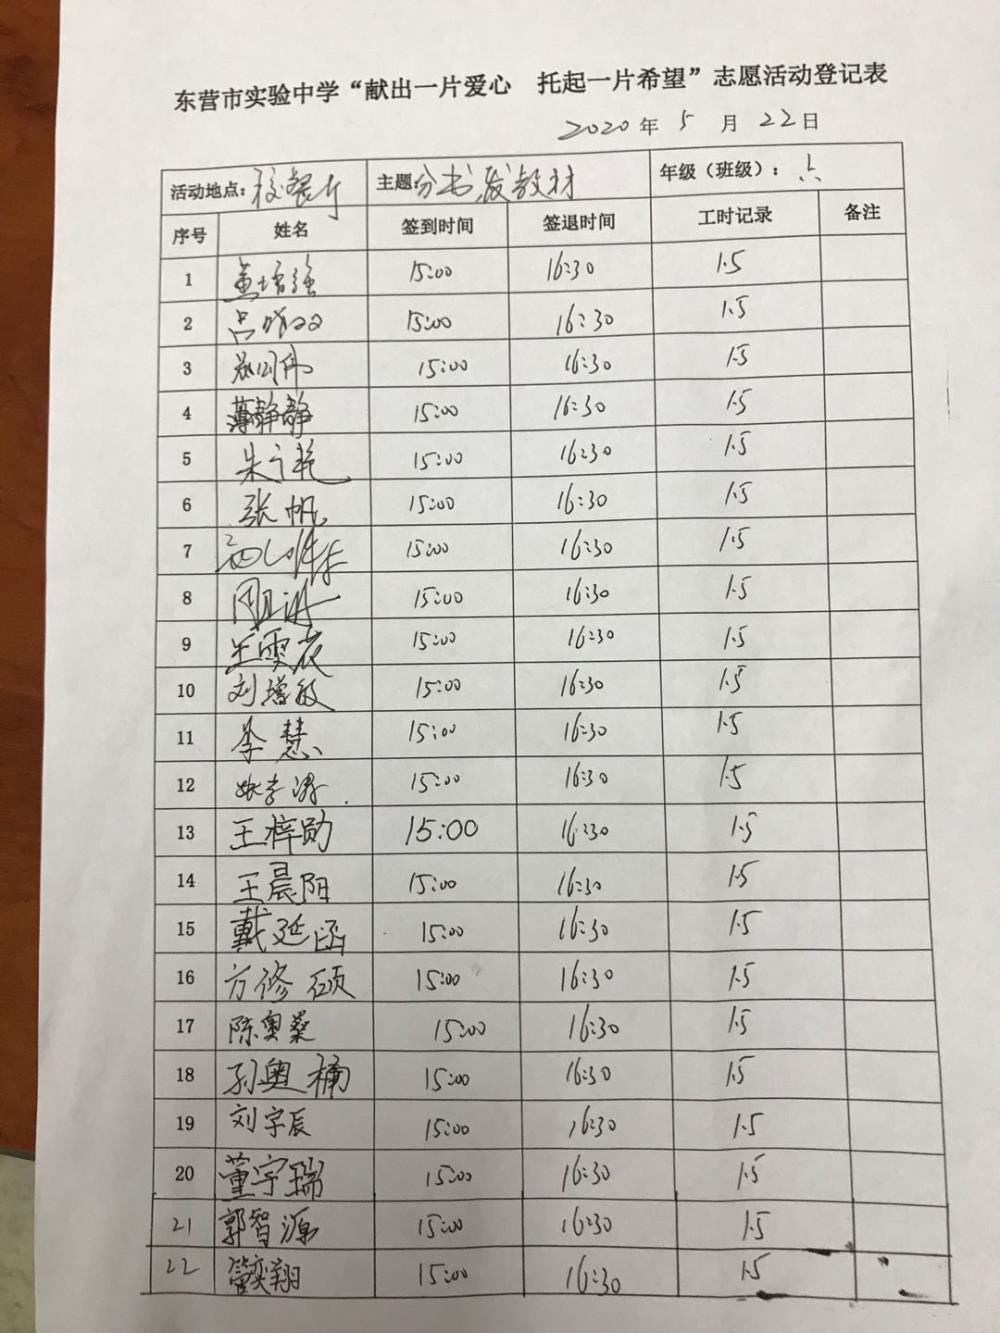 东营市实验中学“献出一片爱心 托起一片希望”志愿活动登记表
2020年 5 月 22日
活动地点: 校餐厅 主题: 分书发教材 年级(班级): 六
序号 姓名 签到时间 签退时间 工时记录 备注
1 15:00 16:30 1.5
2 15:00 16:30 1.5
3 15:00 16:30 1.5
4 薄静静 15:00 16:30 1.5
5 朱 艳 15:00 16:30 1.5
6 张帆 15:00 16:30 1.5
7 15:00 16:30 1.5
8 15:00 16:30 1.5
9 王雯 15:00 16:30 1.5
10 刘增敏 15:00 16:30 1.5
11 李慧 15:00 16:30 1.5
12 15:00 16:30 1.5
13 王梓勋 15:00 16:30 1.5
14 王晨阳 15:00 16:30 1.5
15 戴延函 15:00 16:30 1.5
16 方修硕 15:00 16:30 1.5
17 陈奥燊 15:00 16:30 1.5
18 孙奥楠 15:00 16:30 1.5
19 刘宇辰 15:00 16:30 1.5
20 董宇瑞 15:00 16:30 1.5
21 郭智源 15:00 16:30 1.5
22 管奕翔 15:00 16:30 1.5